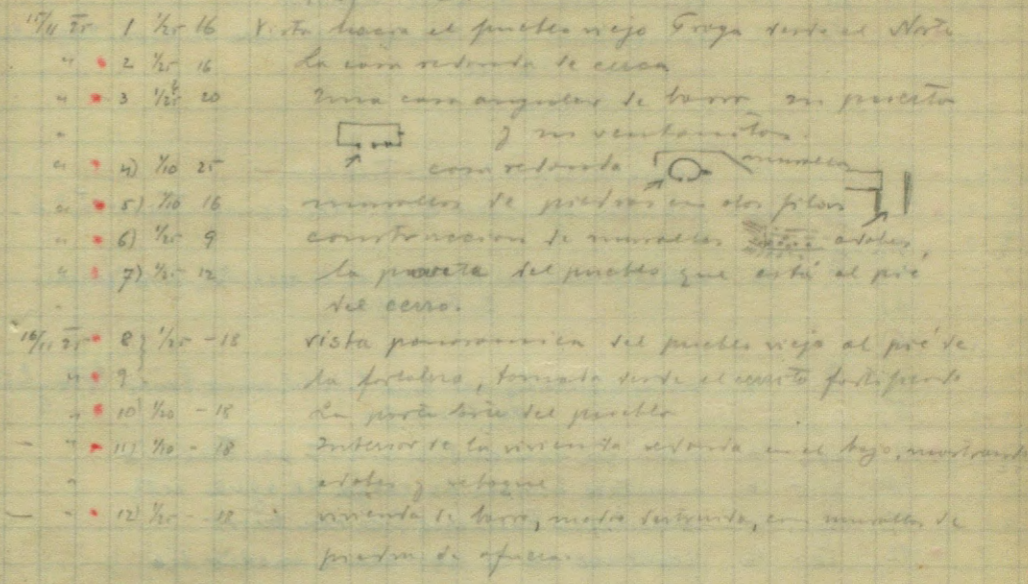 15/11 25 1 1/25 16 Vista hacia el pueblo viejo Troya desde el Norte
" 2 1/25 16 La casa redonda de cerca
" 3 1/25 20 Una casa angular de barro, su puerta
" y sus ventanitas.
" 4) 1/10 25 casa redonda muralla
" 5) 1/10 16 murallas de piedras en dos filas
" 6) 1/25 9 construccion de murallas adobes,
" 7) 1/25 - 12 la del pueblo que está al pié
" del cerro.
16/11 25 8 } 1/25 - 18 vista panoramica del pueblo viejo al pié de
" 9 la fortaleza, tomada desde el cerrito fortificado
" 10) 1/20 - 18 La parte del pueblo
- " 11) 1/10 - 18 Interior de la vivienda redonda en el bajo, mostrando
" adobes y reboque
- " 12) 1/25 - 18 vivienda de barro, medio destruida, con murallas de
piedra de afuera.